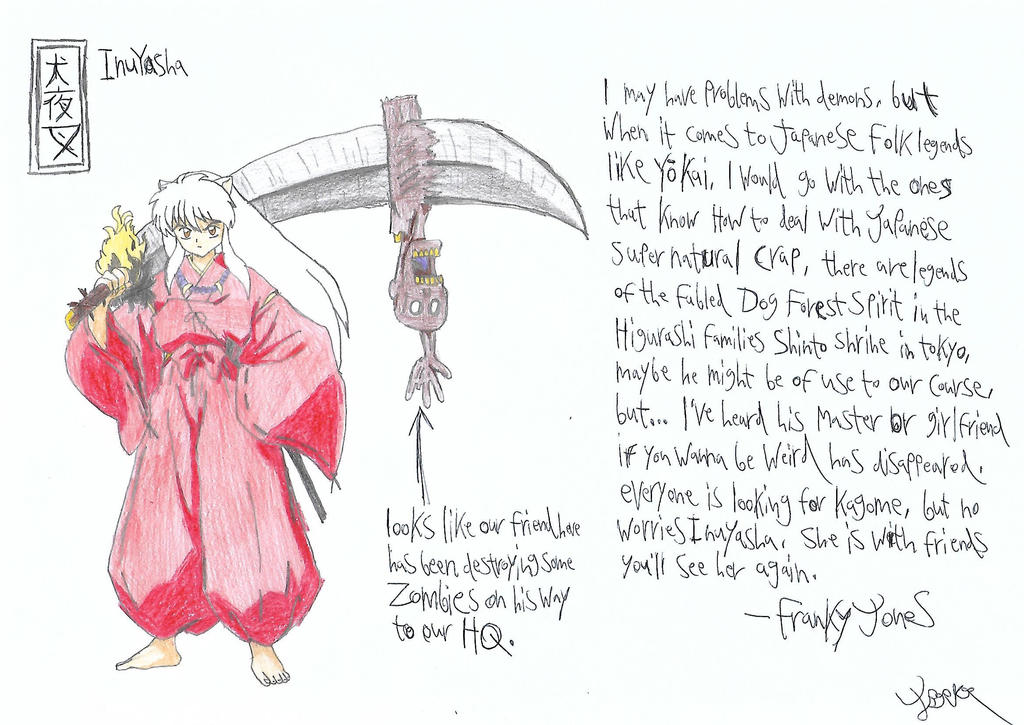 犬
夜
叉
InuYasha
I may have Problems with demons, but
when it comes to Japanese Folk legends
like Yōkai, I would go with the ones
that know How to deal with Japanese
supernatural crap, there are legends
of the fabled Dog Forest Spirit in the
Higurashi families Shinto shrine in tokyo,
maybe he might be of use to our course,
but... I've heard his Master or girlfriend
if you wanna be weird has disappeared.
everyone is looking for Kagome, but no
worries InuYasha, she is with friends
you'll see her again.
—Franky Jones
looks like our friend here
has been destroying some
Zombies on his way
to our HQ.